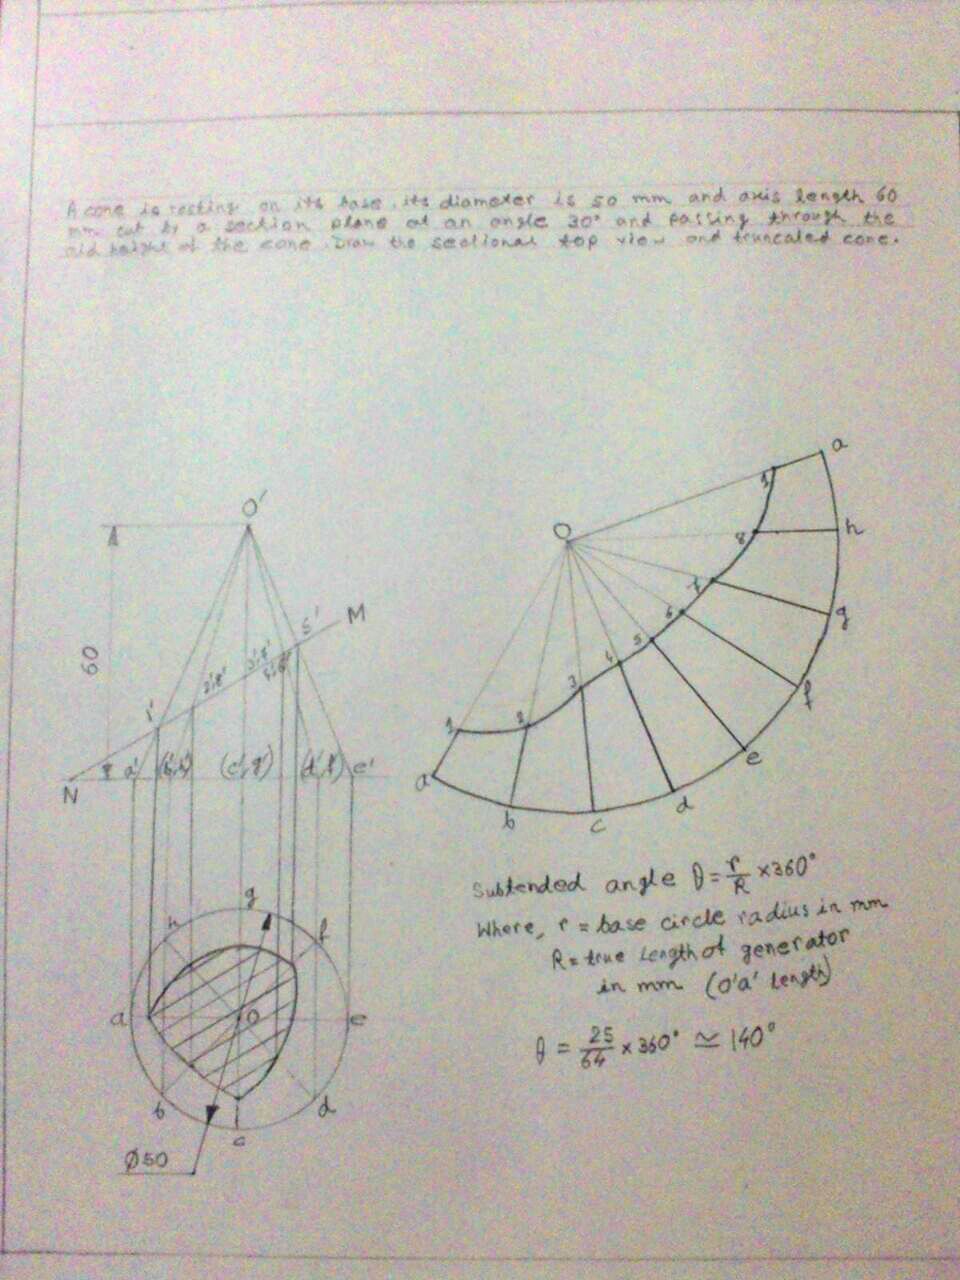 A cone is resting on its base, its diameter is 50 mm and axis length 60
mm cut by a section plane at an angle 30° and passing through the
mid height of the cone. Draw the sectional top view and truncated cone.
O'
60
5' M
1' 2',8'
N a' (c',g') e'
O
a
1
h
8
g
7
f
6
5
e
4
d
3
c
2
b
1
a
Subtended angle θ = r/R × 360°
Where, r = base circle radius in mm
R = true length of generator
in mm (O'a' length)
θ = 25/64 × 360° ≃ 140°
g
h f
a O e
b d
c
Ø50